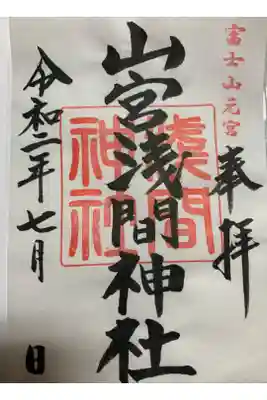 富士山元宮
奉拝
山宮浅間神社
浅間神社
令和二年七月 日